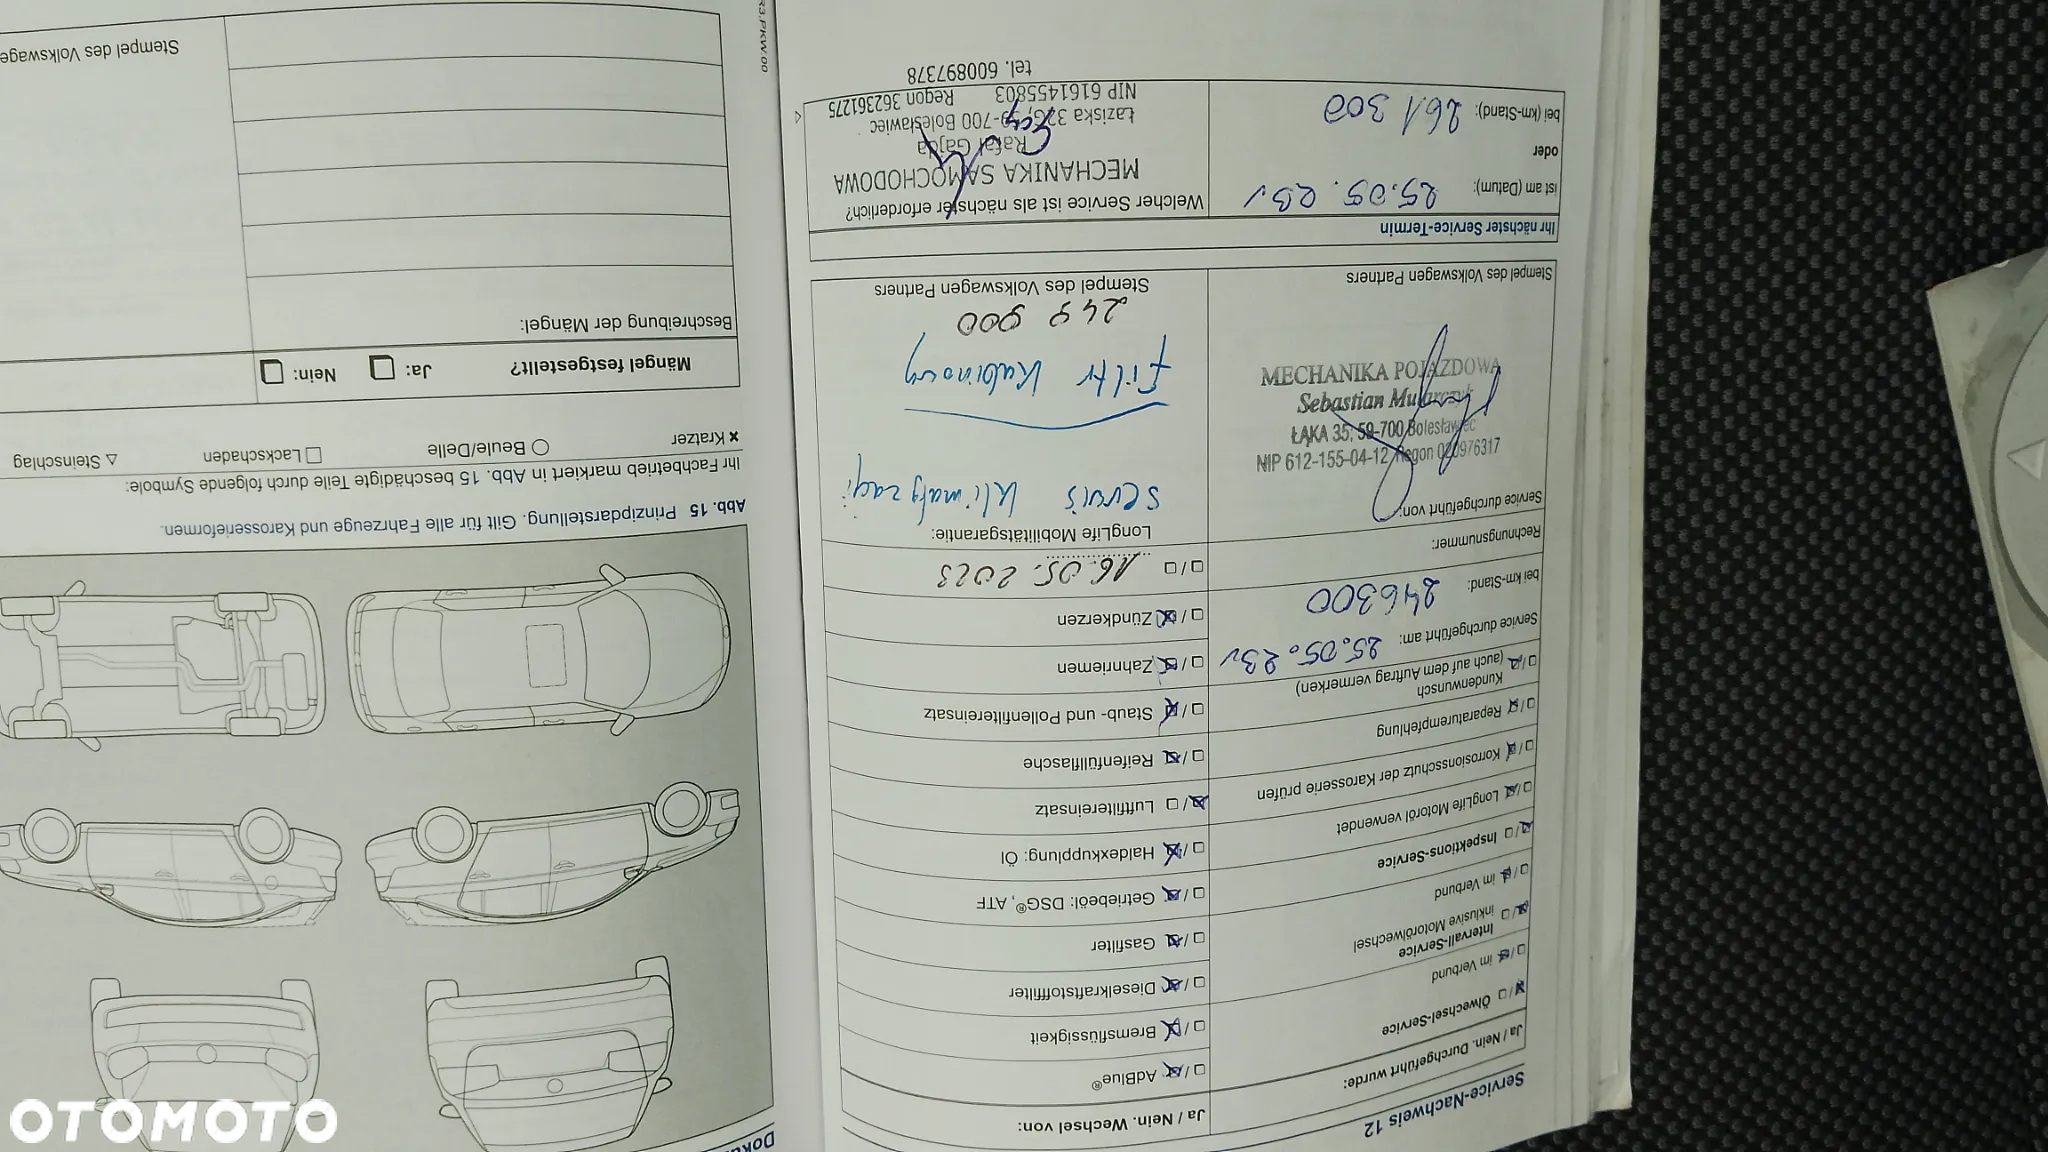 Service-Nachweis 12
Ja / Nein. Durchgeführt wurde:
Ölwechsel-Service
im Verbund
Intervall-Service
inklusive Motorölwechsel
im Verbund
Inspektions-Service
LongLife Motoröl verwendet
Korrosionsschutz der Karosserie prüfen
Reparaturempfehlung
Kundenwunsch
(auch auf dem Auftrag vermerken)
Service durchgeführt am: 25.05.23
bei km-Stand: 246300
Rechnungsnummer:
Service durchgeführt von:
MECHANIKA POJAZDOWA
Sebastian
ŁĄKA 35; 59-700 Bolesławiec
NIP 612-155-04-12, Regon 020976317
Stempel des Volkswagen Partners
Ja / Nein. Wechsel von:
AdBlue®
Bremsflüssigkeit
Dieselkraftstofffilter
Gasfilter
Getriebeöl: DSG®, ATF
Haldexkupplung: Öl
Luftfiltereinsatz
Reifenfüllflasche
Staub- und Pollenfiltereinsatz
Zahnriemen
Zündkerzen
16.05.2023
LongLife Mobilitätsgarantie:
serwis klimatyzacji
filtr kabinowy
249 900
Stempel des Volkswagen Partners
Ihr nächster Service-Termin
ist am (Datum): 25.05.23
oder
bei (km-Stand): 261 300
Welcher Service ist als nächster erforderlich?
MECHANIKA SAMOCHODOWA
Rafał Gajda
Łaziska 37G, 59-700 Bolesławiec
NIP 6161455803 Regon 362361275
tel. 600897378
Abb. 15 Prinzipdarstellung. Gilt für alle Fahrzeuge und Karosserieformen.
Ihr Fachbetrieb markiert in Abb. 15 beschädigte Teile durch folgende Symbole:
Kratzer
Beule/Delle
Lackschaden
Steinschlag
Mängel festgestellt? Ja: Nein:
Beschreibung der Mängel:
Stempel des
OTOMOTO